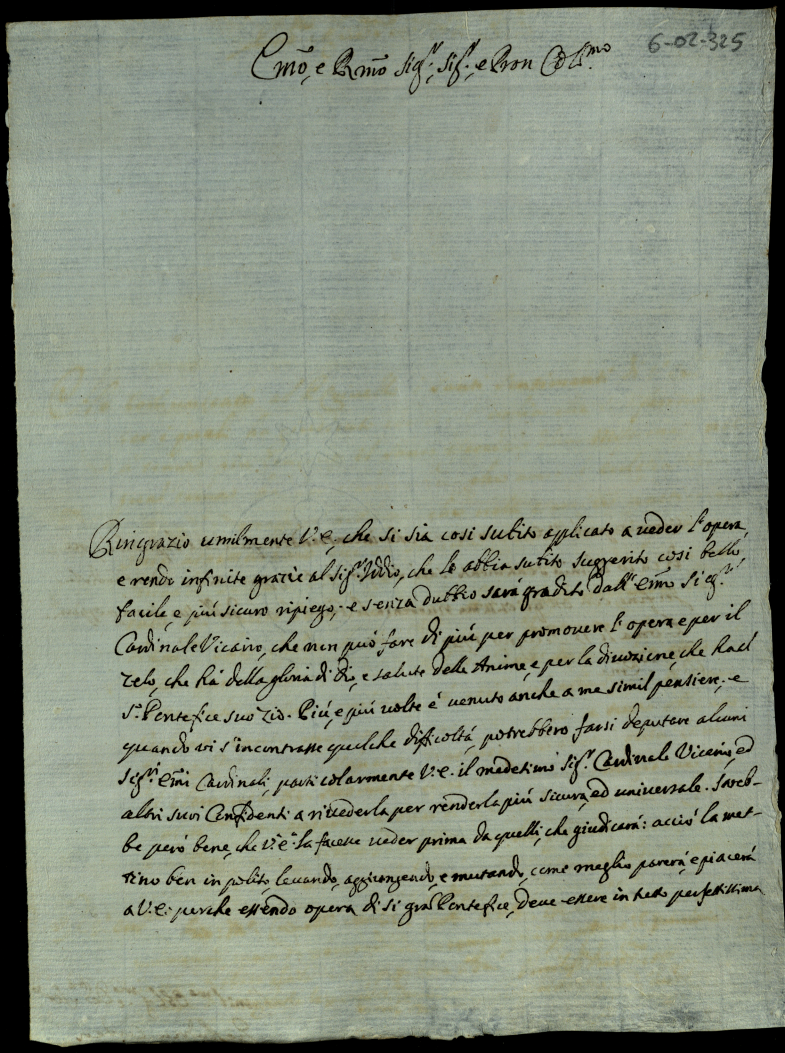 6-02-325
Emo, e Rmo Sigr, Sigr, e Pron Colmo
Ringrazio umilmente V. E. che si sia cosi subito applicato a veder l'opera,
e rendo infinite grazie al Sigr Iddio, che le abbia subito suggerito cosi bello,
facile, e più sicuro ripiego, e senza dubbio sarà gradito dall' Emo Sigr
Cardinale Vicario, che non può fare di più per promovere l'opera e per il
zelo, che hà della gloria di Dio, e salute delle Anime, e per la divozione, che ha al
S. Pontefice suo Zio. Più, e più volte è venuto anche a me simil pensiere, e
quando vi s'incontrasse qualche difficoltà, potrebbero farsi deputare alcuni
Sigri Emi Cardinali, particolarmente V. E. il medesimo Sigr Cardinale Vicario, ed
altri suoi Confidenti a rivederla per renderla più sicura, ed universale. Sareb-
be però bene, che V. E. la facesse veder prima da quelli, che giudicarà: acciò la met-
tino ben in polito, levando, aggiungendo, e mutando, come meglio parerà, e piacerà
a V. E. perche essendo opera di si gran Pontefice, deve essere in tutto perfettissima